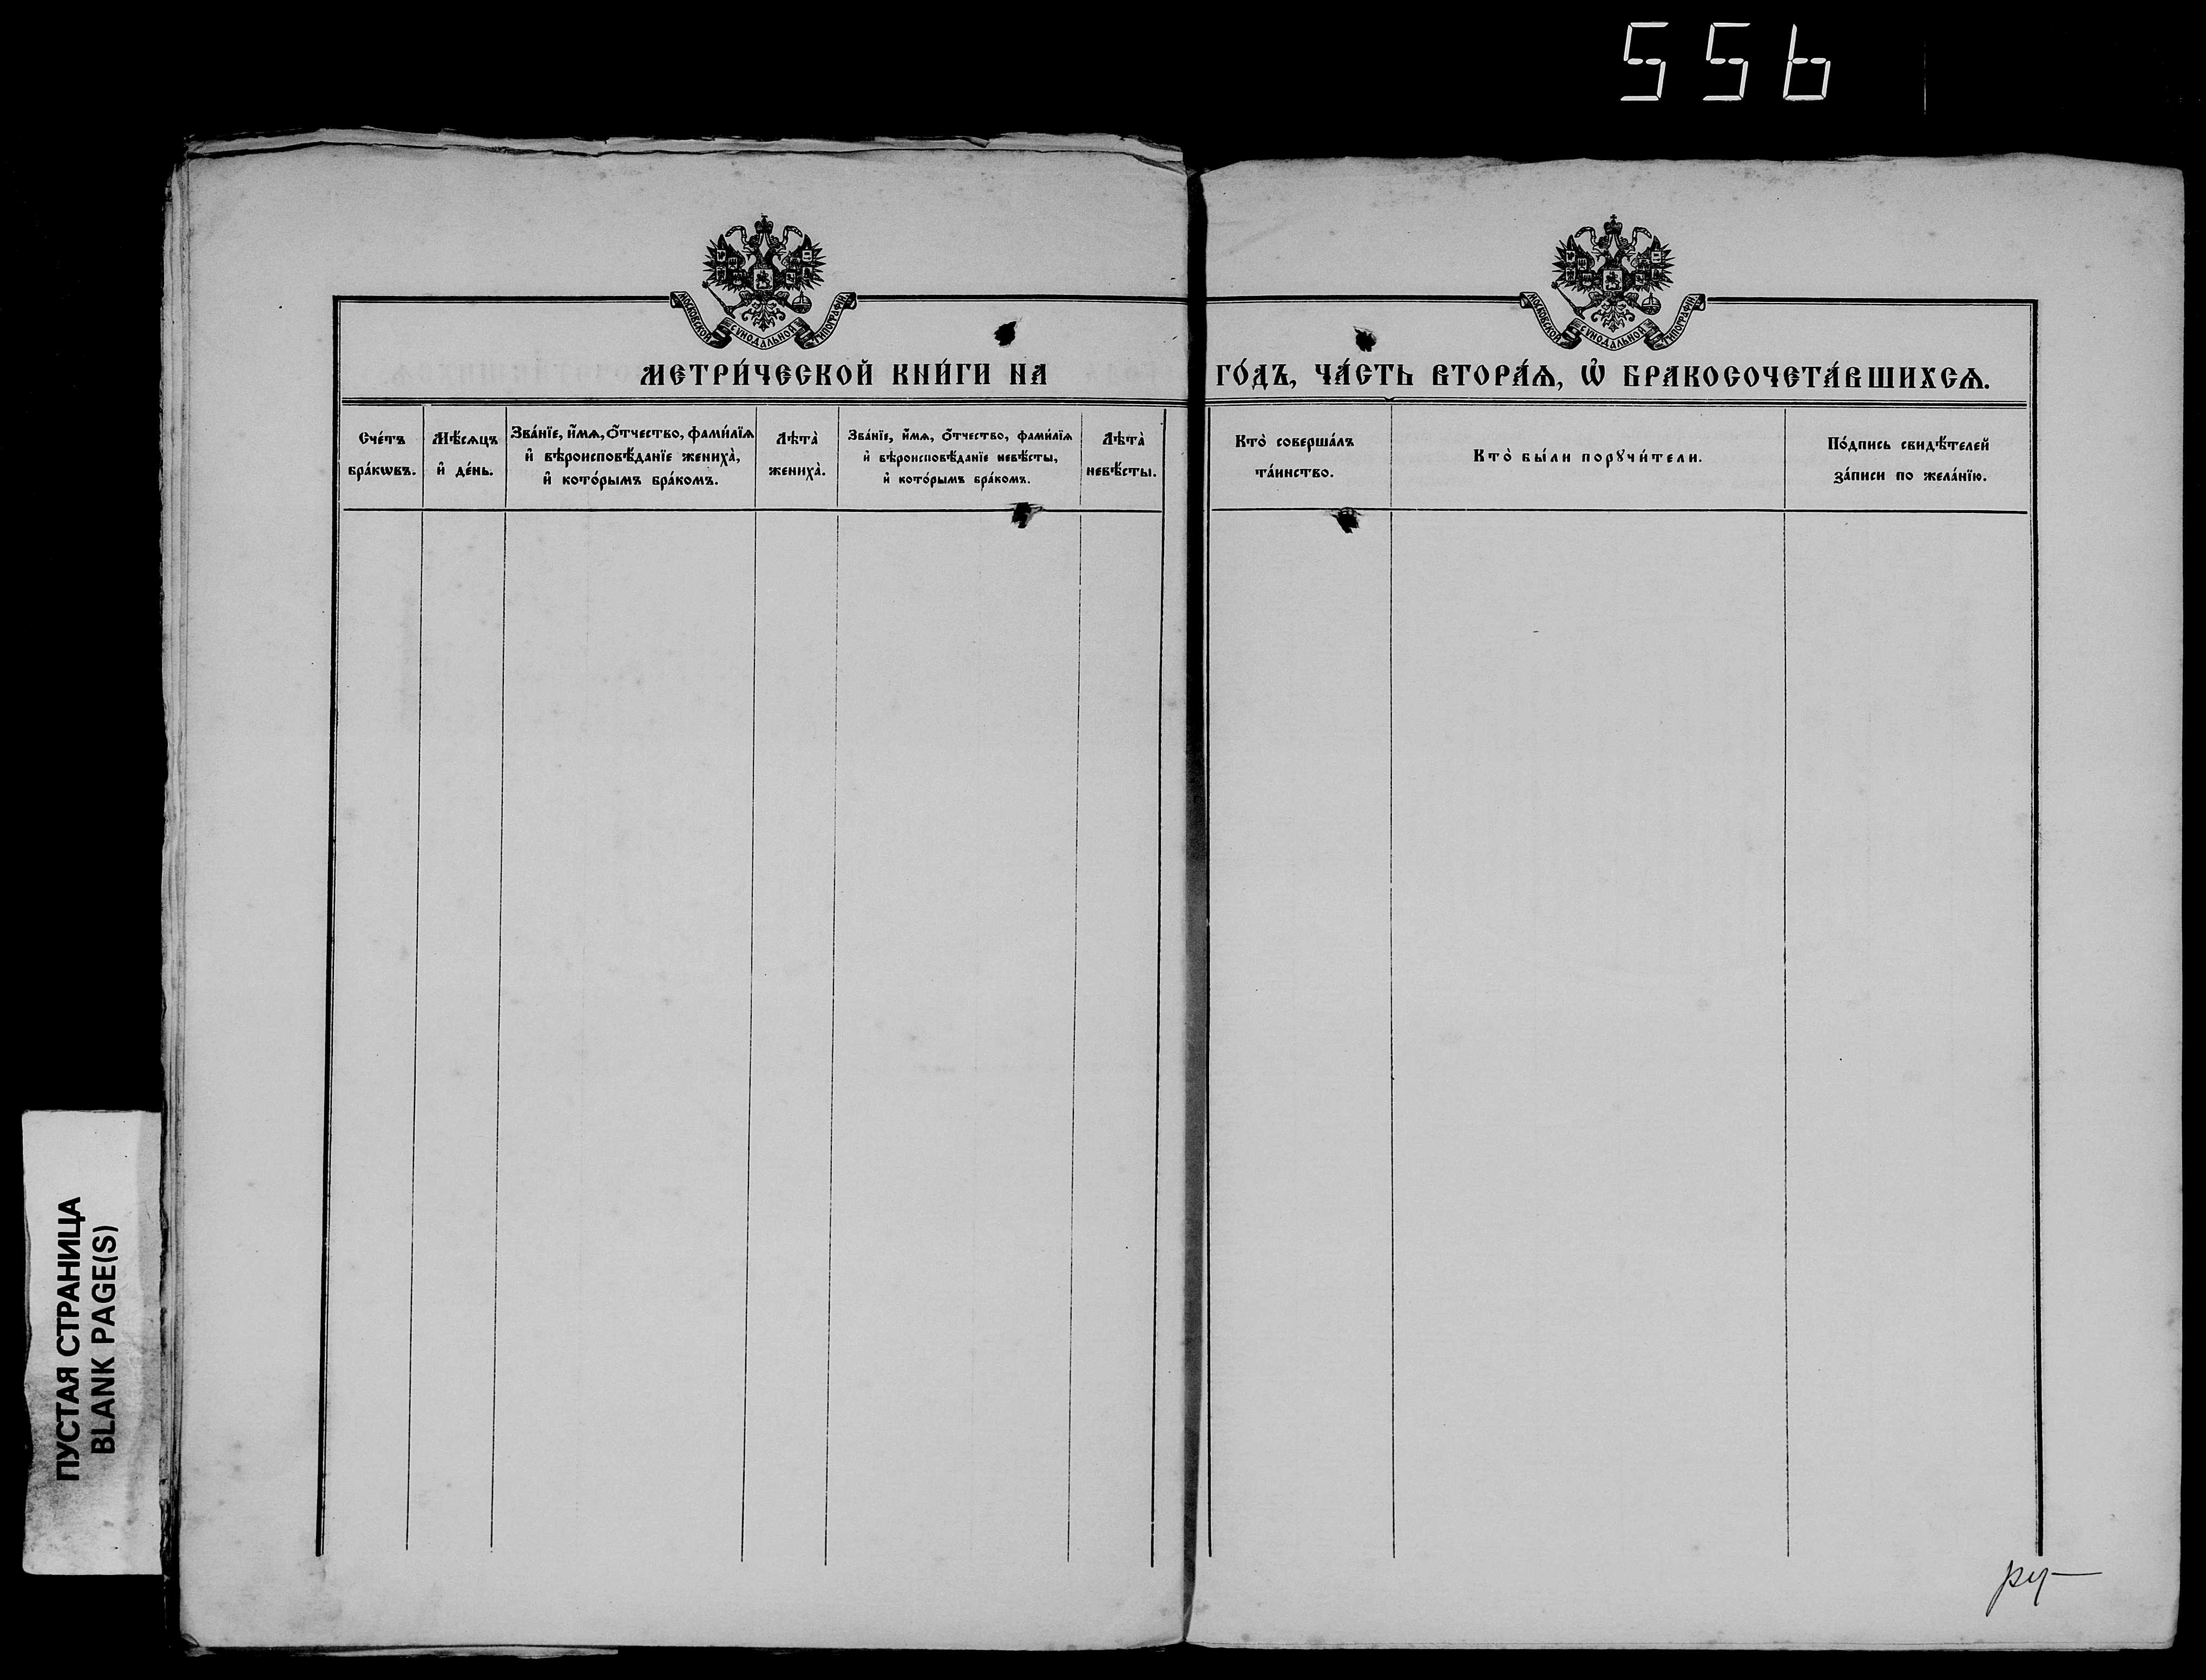 556
МОСКОВСКОЙ СѴНОДАЛЬНОЙ ТИПОГРАФІИ
МОСКОВСКОЙ СѴНОДАЛЬНОЙ ТИПОГРАФІИ
МЕТРИ́ЧЕСКОЙ КНИ́ГИ НА ГО́ДЪ, ЧА́СТЬ ВТОРА́Ѧ, Ѡ҆ БРАКОСОЧЕТА́ВШИХСѦ.
Сче́тъ
бра́кѡвъ.
Мѣ́сѧцъ
и҆ де́нь.
Зва́нїе, и҆́мѧ, ѻ҆́тчество, фами́лїѧ
и҆ вѣроисповѣ́данїе жениха̀,
и҆ кото́рымъ бра́комъ.
Лѣта̀
жениха̀.
Зва́нїе, и҆́мѧ, ѻ҆́тчество, фами́лїѧ
и҆ вѣроисповѣ́данїе невѣ́сты,
и҆ кото́рымъ бра́комъ.
Лѣта̀
невѣ́сты.
Кто̀ соверша́лъ
та́инство.
Кто̀ бы́ли порꙋчи́тели.
По́дпись свидѣ́телей
за́писи по жела́нїю.
ПУСТАЯ СТРАНИЦА
BLANK PAGE(S)